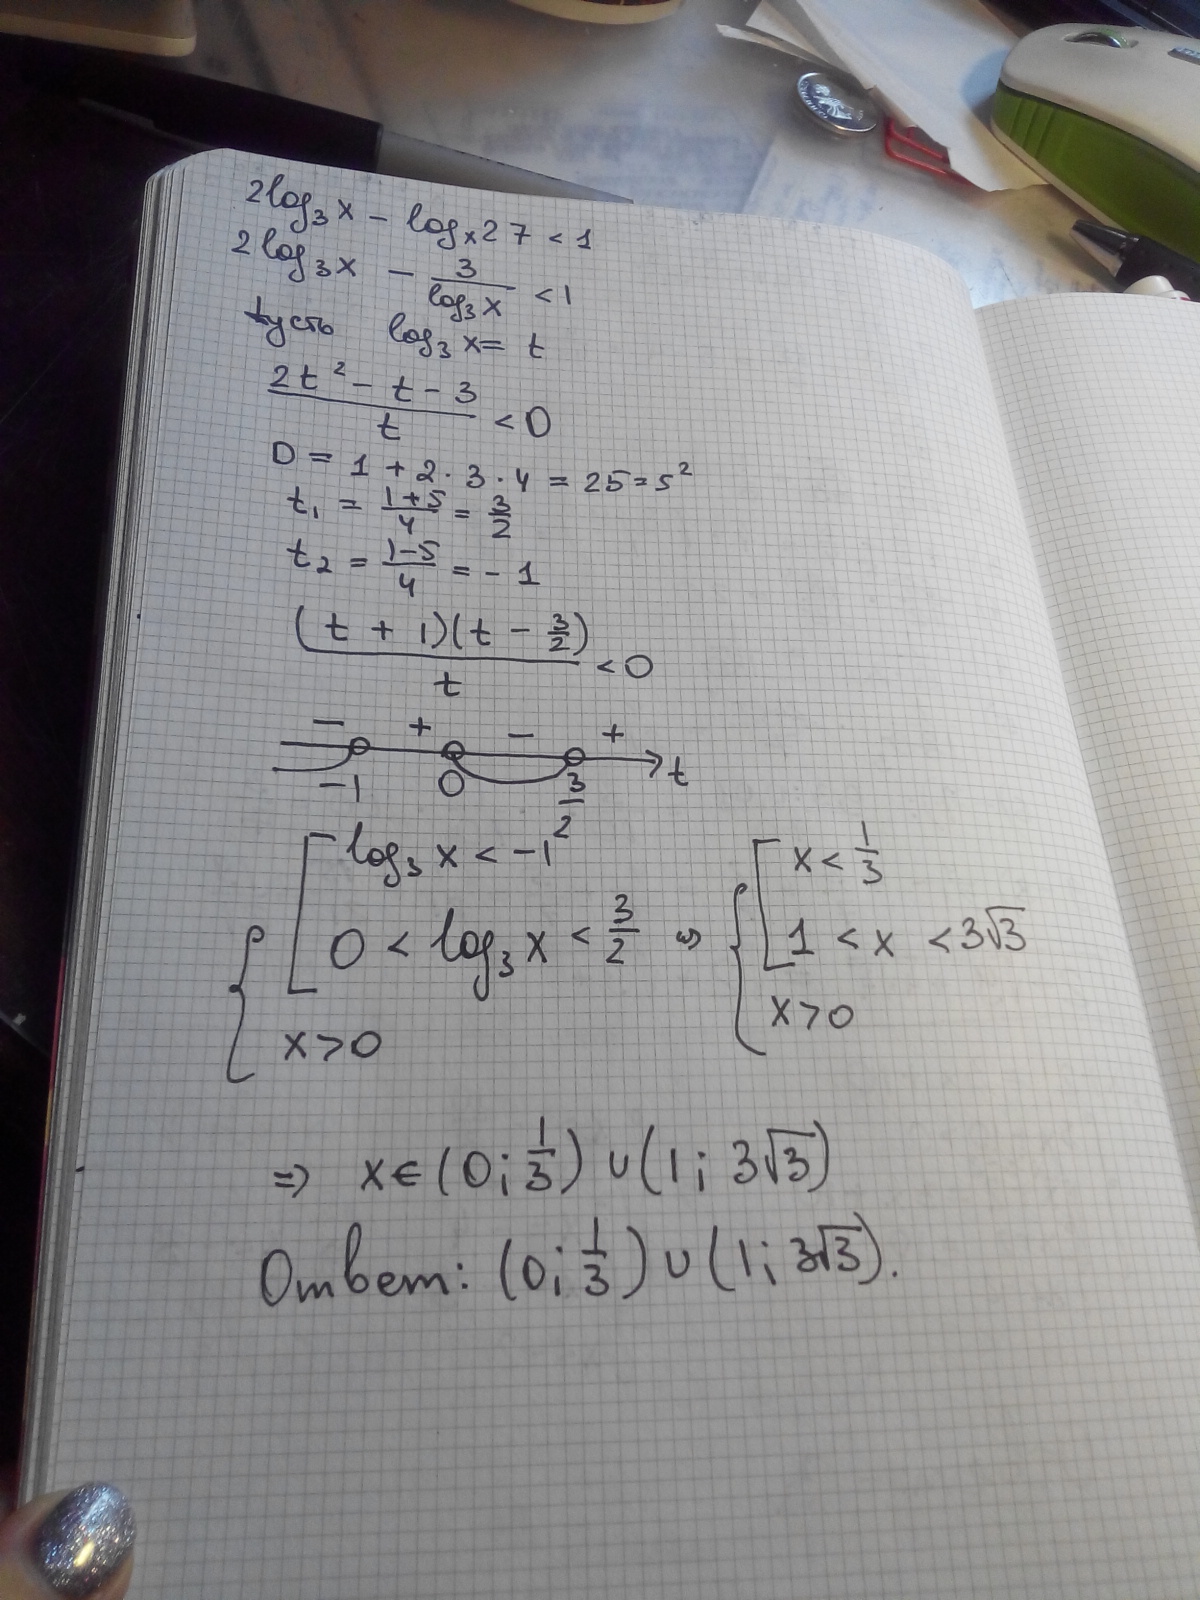 2log₃x - logₓ27 < 1
2log₃x - 3/log₃x < 1
Пусть log₃x = t
(2t² - t - 3)/t < 0
D = 1 + 2·3·4 = 25 = 5²
t₁ = (1+5)/4 = 3/2
t₂ = (1-5)/4 = -1
((t + 1)(t - 3/2))/t < 0
- + - +
-1 0 3/2 t
{ [ log₃x < -1 [ x < 1/3
0 < log₃x < 3/2 ⇔ { 1 < x < 3√3
x > 0 x > 0
⇒ x ∈ (0; 1/3) ∪ (1; 3√3)
Ответ: (0; 1/3) ∪ (1; 3√3).